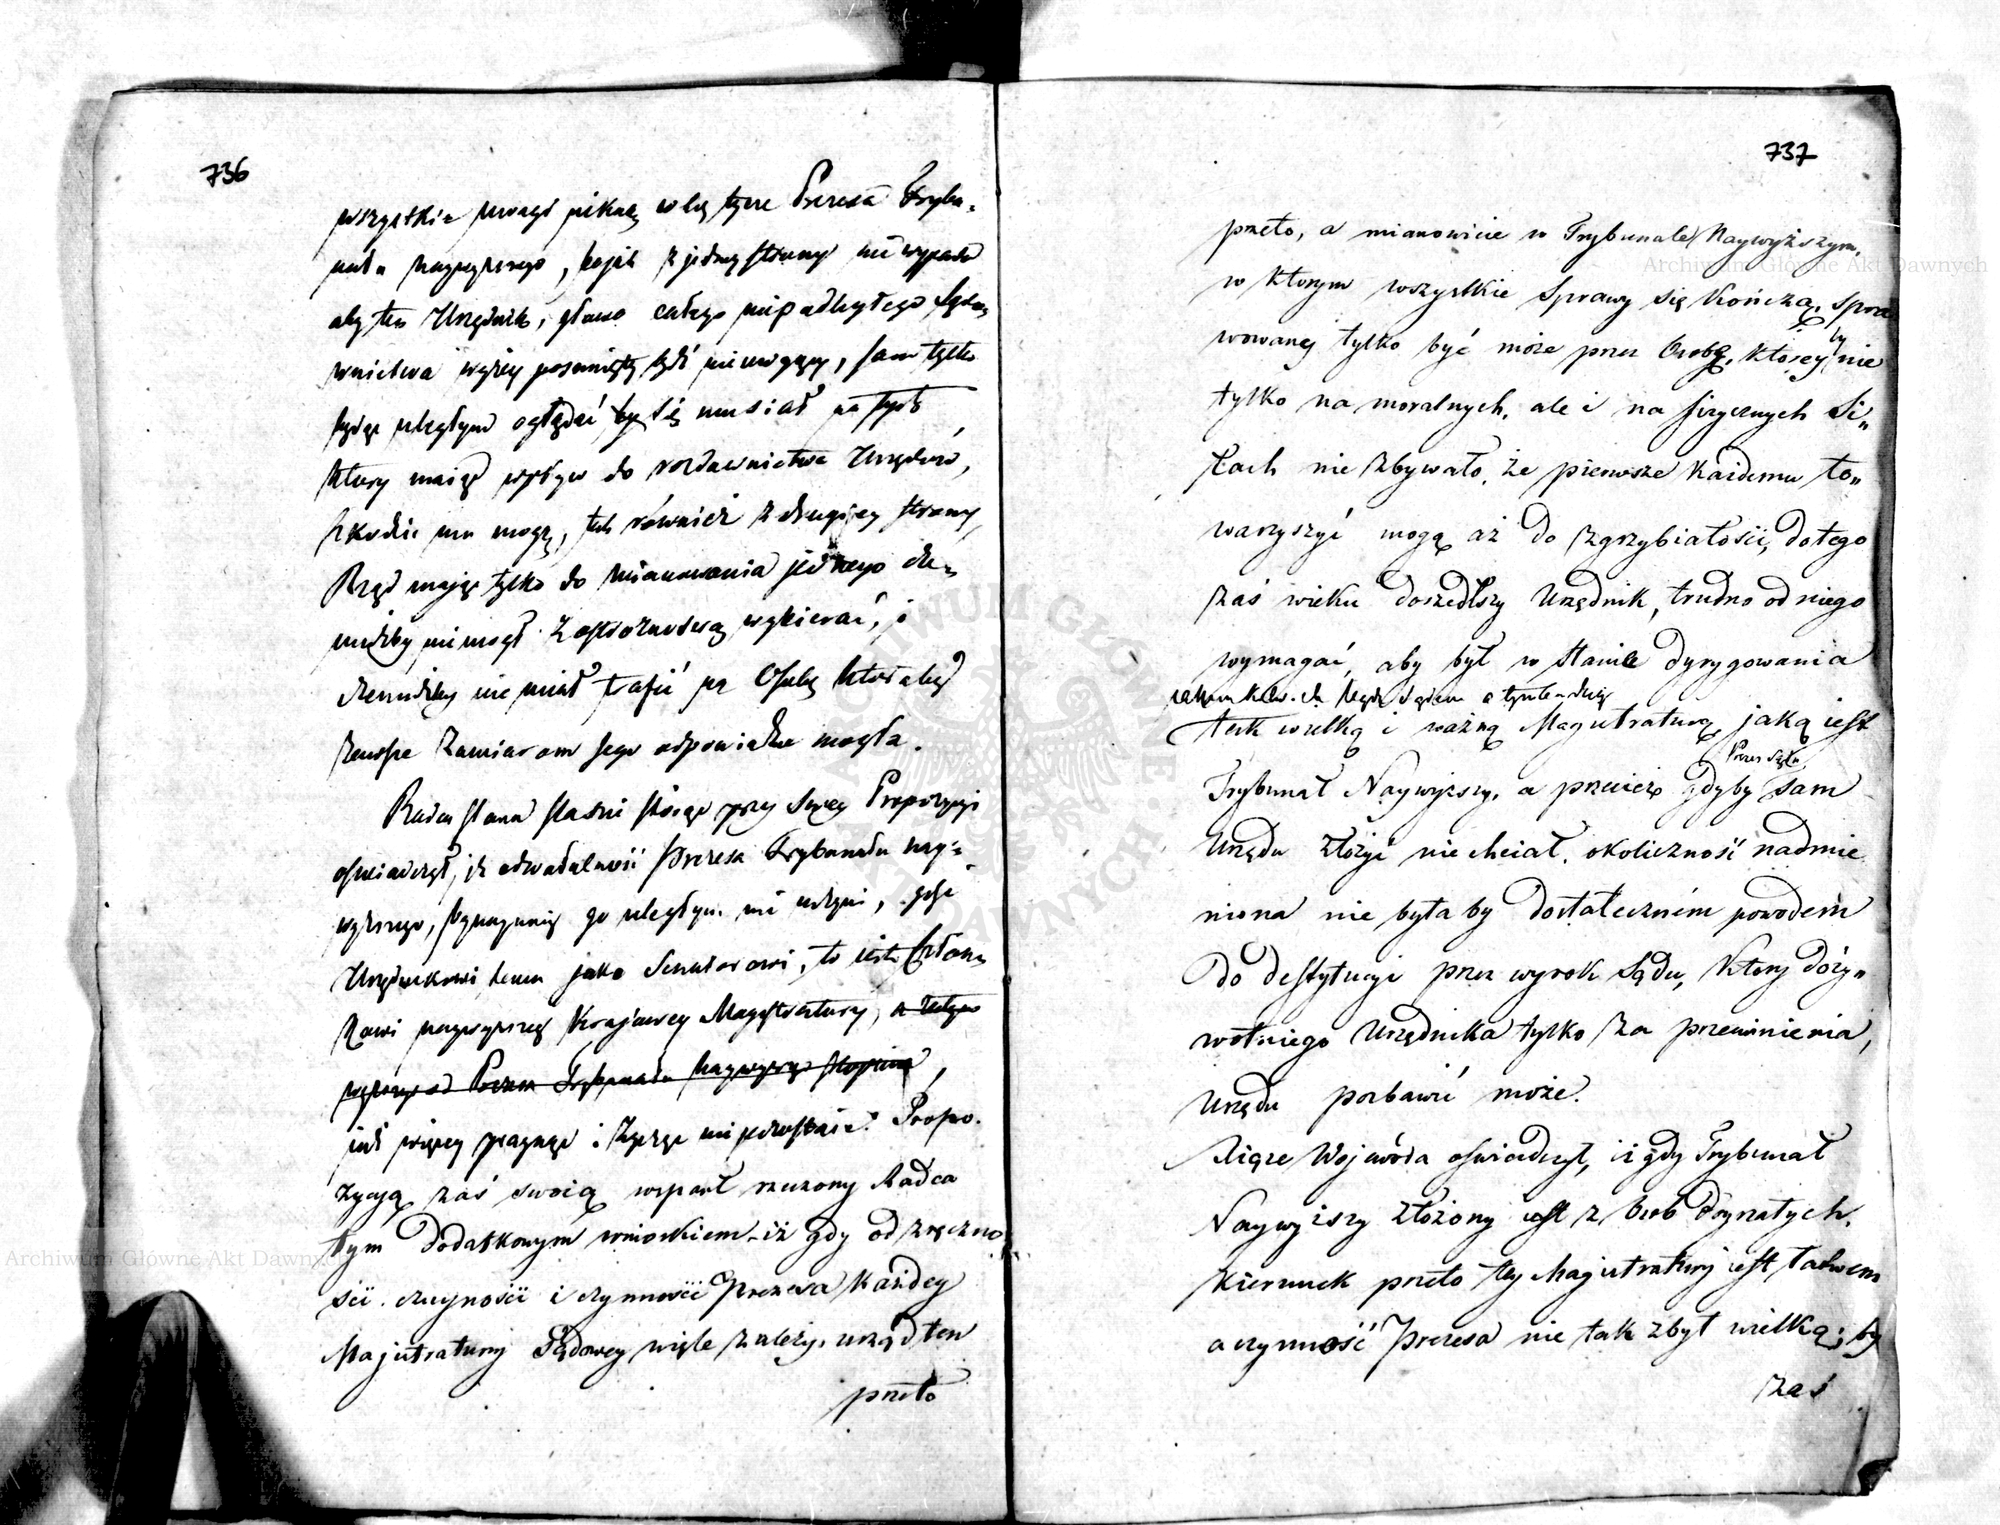 736
wszystkie uwagi Prezesa Trybu-
nału naywyższego, bo jak z jedney strony nie wypada
aby ten Urzędnik, głowa całego niepodległego Sądo-
wnictwa wyżey posunięty bydź niemogący, sam tylko
będąc uległym oglądać się musiał na tych
ktorzy maiąc wpływ do rozdawnictwa Urzędów,
szkodzić mu mogą, tak również z drugiey strony
Rząd mając tylko do mianowania jednego
niemogł z ostrożnością wybierać, i
nie miał trafić na Osobę któraby
zawsze zamiarom Jego odpowiadać mogła.
Radca Stanu przy swey Propozycyi
oświadczył, iż odwołalność Prezesa Trybunału nay-
wyższego, go uległym nie uczyni, gdyż
Urzędnikowi temu jako Senatorowi, to iest Człon-
kowi naywyższey Krajowey Magistratury,
Prezesa Trybunału Naywyższego
już więcey pragnąć i życzyć nie pozostaie. Propo-
zycyą zaś swoią wsparł rzeczony Radca
tym dodatkowym wnioskiem, iż gdy od zręczno-
ści, czujności i czynności Prezesa każdey
Magistratury Sądowey wiele zależy, urząd ten
przeto
737
przeto, a mianowicie w Trybunale Naywyższym,
w ktorym wszystkie Sprawy się kończą, spra-
wowaney tylko być może przez Osobę, ktorey by nie
tylko na moralnych, ale i na fizycznych Si-
łach nie zbywało, że pierwsze każdemu to-
warzyszyć mogą aż do zgrzybiałości, do tego
zaś wieku doszedłszy Urzędnik, trudno od niego
wymagać, aby był w stanie dyrygowania
tak wielką i ważną Magistraturą, jaką iest
Prezes Sądu
Trybunał Naywyższy, a przecież gdyby sam
Urzędu złożyć nie chciał, okoliczność nadmie
niona nie była by dostateczném powodem
do destytucyi przez wyrok Sądu, Ktory doży-
wotniego Urzędnika tylko za przewinienia,
Urzędu pozbawić może.
Xiąże Wojewóda oświadczył, iż gdy Trybunał
Naywyższy złożony iest z Osób doyrzałych,
Kierunek przeto tey Magistratury iest łatwem
a czynność Prezesa nie tak zbyt wielką; by
zaś